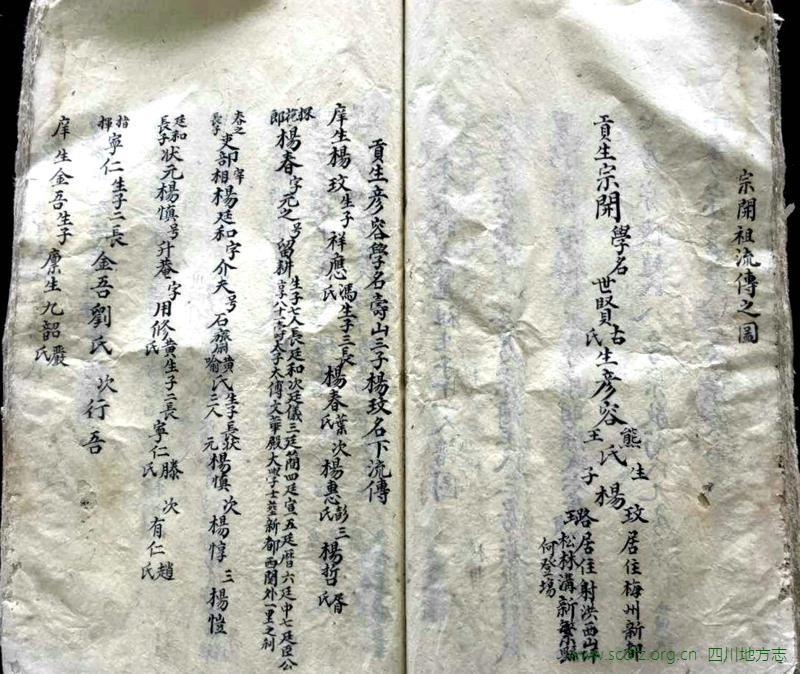 宗開祖流傳之圖
貢生宗開學名世賢古氏生彥容熊氏生王氏子楊
玟居住梅州新都
路居住射洪西山坪
珏松林溝新繁縣
何登場
貢生彥容學名壽山三子楊玟名下流傳
庠生楊玟生子祥應馮氏生子三長楊春葉氏次楊惠彭氏三楊哲胥氏
郎楊春字元之号留耕生子七人長廷和次廷儀三廷簡四廷宣五廷曆六廷中七廷臣公
享八十二壽太子太傅文華殿大學士葬新都西関外一里之祠
春之長子吏部宰相楊廷和字介夫号石齋黄氏喻氏二人生子長狀元楊慎次楊惇三楊愷
廷和長子狀元楊慎号升菴字用修黄氏生子二長寧仁滕氏次有仁趙氏
指揮寧仁生子二長金吾劉氏次行吾
庠生金吾生子廪生九韶嚴氏
www.scdfz.org.cn 四川地方志